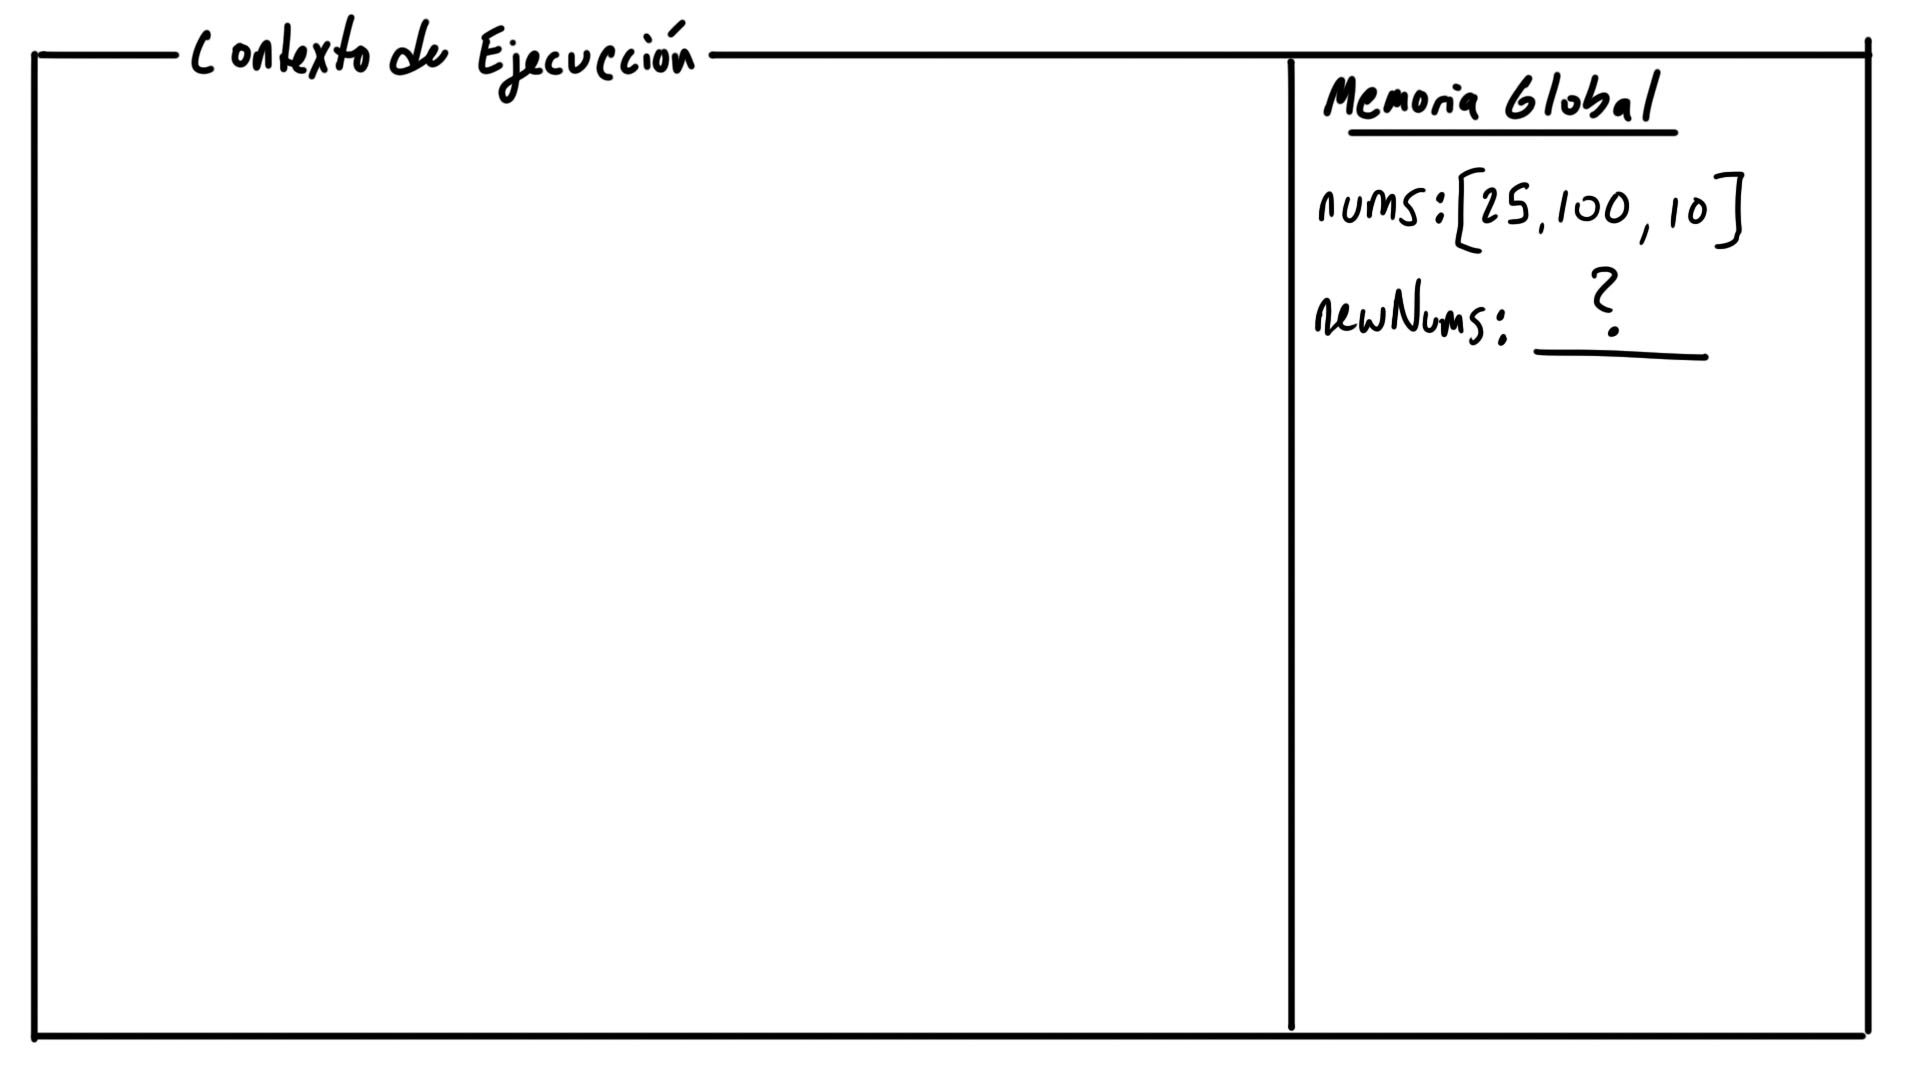 Contexto de Ejecucción
Memoria Global
nums: [25, 100, 10]
newNums: ?